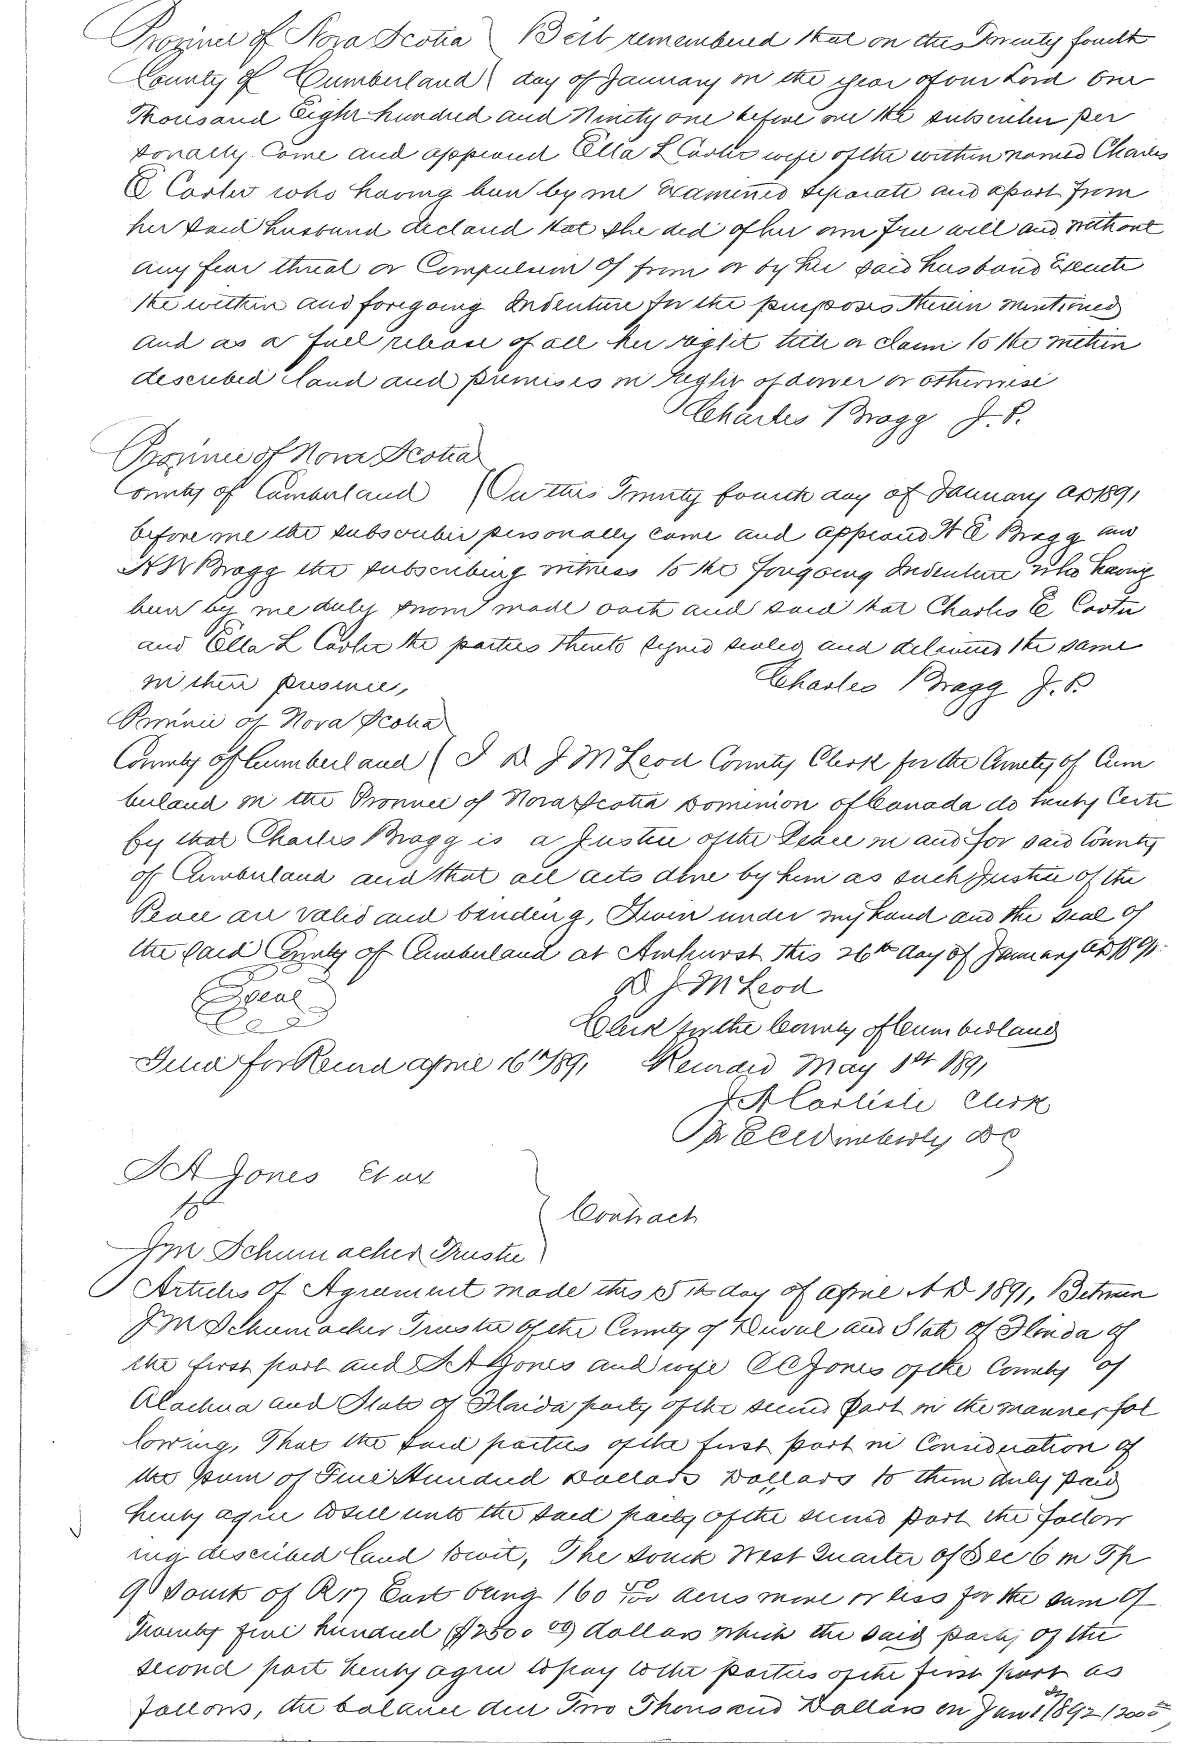 Province of Nova Scotia Be it remembered that on this Twenty fourth
County of Cumberland day of January in the year of our Lord One
Thousand Eight hundred and Ninety one before me the subscriber per
sonally Came and appeared Ella L Carter wife of the within named Charles
E Carter who having been by me Examined Separate and apart from
her said husband declared that she did of her own Free will and without
any fear threat or Compulsion of from or by her said husband Execute
the within and foregoing Indenture for the purposes therein mentioned
and as a full release of all her right title or claim to the within
described land and premises in right of dower or otherwise
Charles Bragg J.P.
Province of Nova Scotia
County of Cumberland On this Twenty fourth day of January AD 1891
before me the subscriber personally came and appeared H E Bragg and
H W Bragg the subscribing witness to the foregoing Indenture who having
been by me duly sworn made oath and said that Charles E Carter
and Ella L Carter the parties thereto signed sealed and delivered the same
in their presence,
Charles Bragg J.P.
Province of Nova Scotia
County of Cumberland I D J McLeod County Clerk for the County of Cum
berland in the Province of Nova Scotia Dominion of Canada do hereby Certi
fy that Charles Bragg is a Justice of the Peace in and for said County
of Cumberland and that all acts done by him as such Justice of the
Peace are valid and binding, Given under my hand and the seal of
the said County of Cumberland at Amhurst this 26th day of January AD 1891
Seal
D J McLeod
Clerk for the County of Cumberland
Filed for Record April 16th 1891 Recorded May 1st 1891
J A Carlisle Clerk
Wimberly DC
J A Jones Et ux
to
Contract
J M Schumacher Trustee
Articles of Agreement made this 15th day of April A D 1891, Between
J M Schumacher Trustee of the County of Duval and State of Florida of
the first part and J A Jones and wife C C Jones of the County of
Alachua and State of Florida party of the second part in the manner fol
lowing, That the said parties of the first part in Consideration of
the sum of Five Hundred Dollars Dollars to them duly paid
hereby agree to sell unto the said party of the second part the follow
ing described land towit, The South West Quarter of Sec 6 in Tp
9 South of R 17 East being 160 50/100 acres more or less for the sum of
Twenty five hundred ($2500 00) dollars which the said party of the
second part hereby agree to pay to the parties of the first part as
follows, the balance due Two Thousand Dollars on Jany 1st 1892